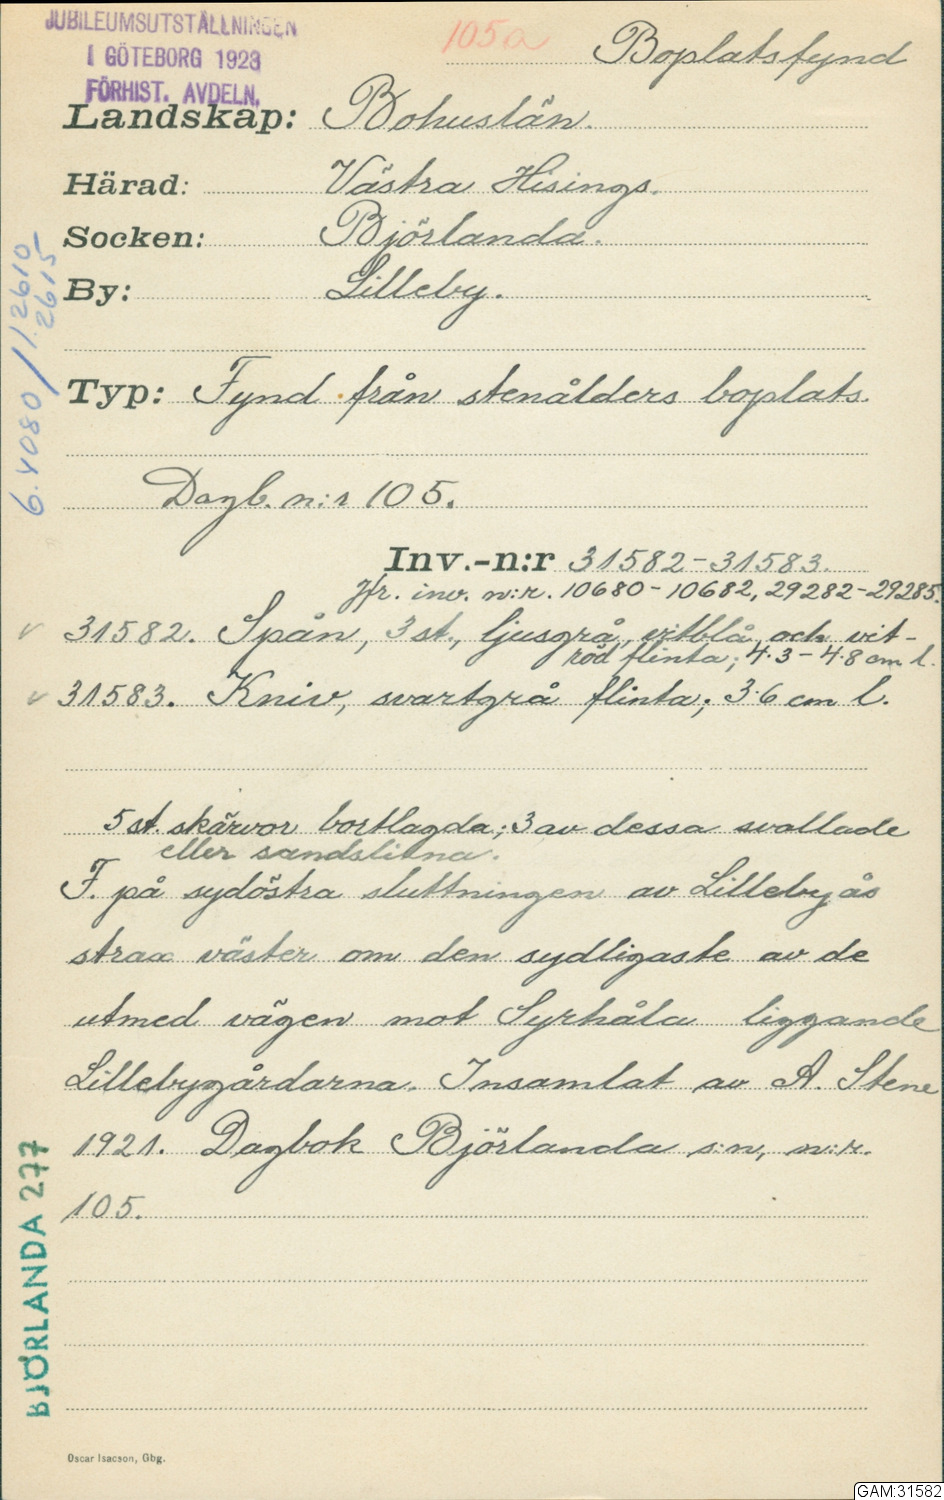 JUBILEUMSUTSTÄLLNINGEN
I GÖTEBORG 1923
FÖRHIST. AVDELN.
105a
Boplatsfynd
Landskap: Bohuslän.
Härad: Västra Hisings.
Socken: Björlanda.
By: Lilleby.
6.4080/1.2610-
2615
Typ: Fynd från stenålders boplats.
Dagb. n:r 105.
Inv.-n:r 31582-31583.
Jfr. inv. n:r. 10680-10682, 29282-29285.
v 31582. Spån, 3 st., ljusgrå, vitblå, och vit-
röd flinta; 4.3-4.8 cm l.
v 31583. Kniv, svartgrå flinta; 3.6 cm l.
5 st. skärvor bortlagda; 3 av dessa svallade
eller sandslitna.
F. på sydöstra sluttningen av Lillebyås
strax väster om den sydligaste av de
utmed vägen mot Syrhåla liggande
Lillebygårdarna. Insamlat av A. Stene
1921. Dagbok Björlanda s:n, n:r.
105.
BJÖRLANDA 277
Oscar Isacson, Gbg.
GAM:31582